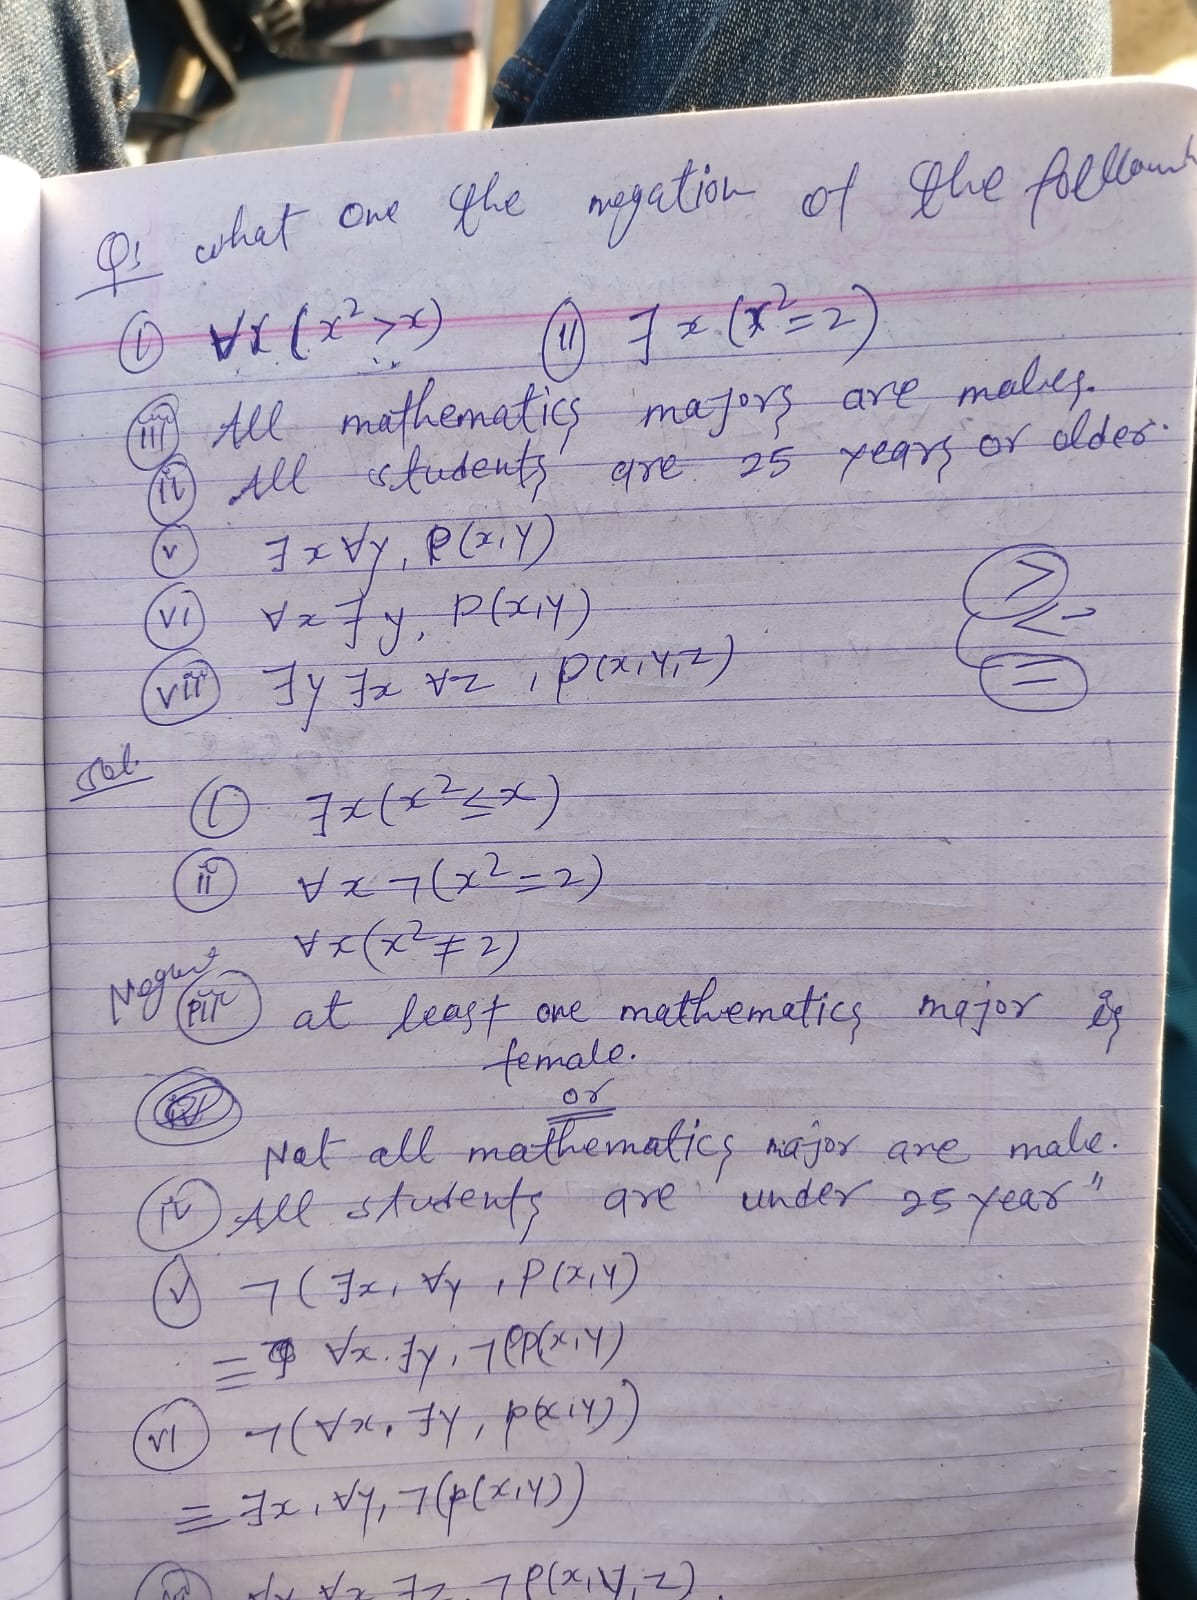 Q: what are the negation of the following
(i) ∀x (x² > x) (ii) ∃x (x² = 2)
(iii) All mathematics majors are males.
(iv) All students are 25 years or older.
(v) ∃x ∀y, P(x,y)
(vi) ∀x ∃y, P(x,y)
(vii) ∃y ∃x ∀z, P(x,y,z)
>
<
=
Sol.
(i) ∃x (x² ≤ x)
(ii) ∀x ¬(x² = 2)
∀x (x² ≠ 2)
(iii) at least one mathematics major is
female.
or
Not all mathematics major are male.
(iv) All students are "under 25 year"
(v) ¬(∃x, ∀y, P(x,y)
≡ ∀x. ∃y, ¬P(x,y)
(vi) ¬(∀x, ∃y, p(x,y))
≡ ∃x, ∀y, ¬(p(x,y))
(vii) ∀y ∀x ∃z ¬P(x,y,z).